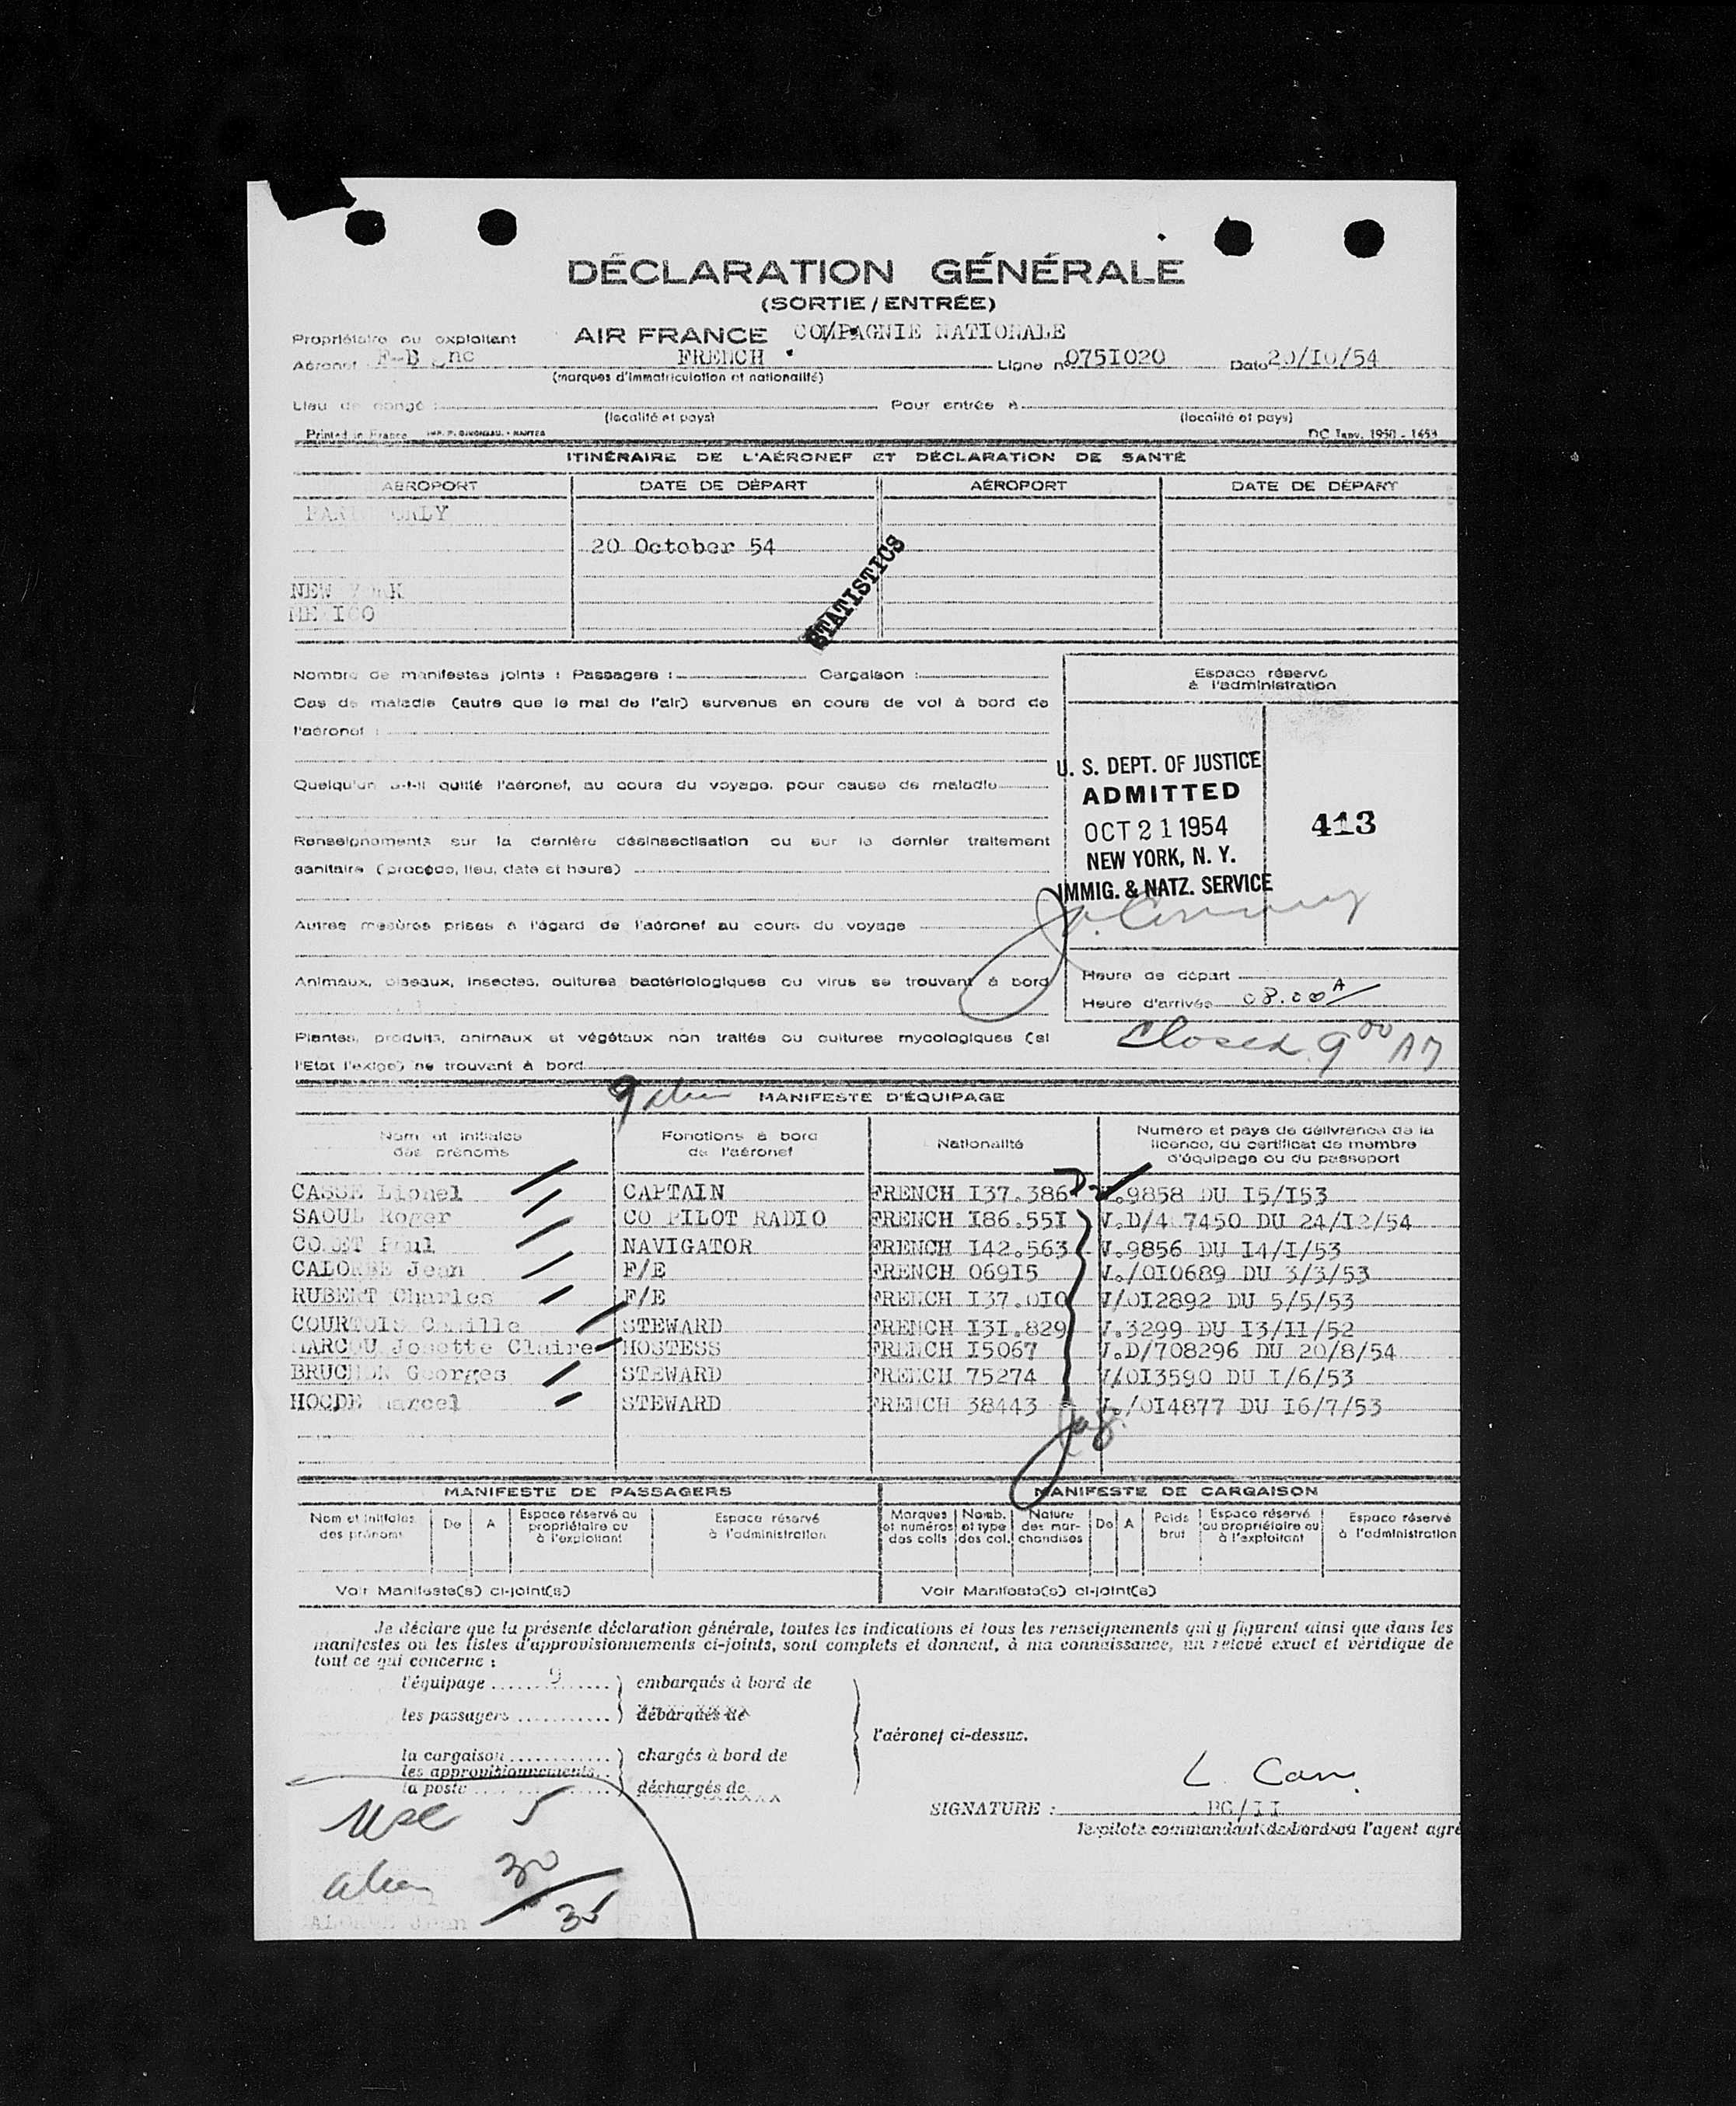 DÉCLARATION GÉNÉRALE
(SORTIE / ENTRÉE)
Propriétaire ou exploitant AIR FRANCE COMPAGNIE NATIONALE
Aéronef F-B nc FRENCH Ligne n° 075I020 Date 20/I0/54
(marques d'immatriculation et nationalité)
Lieu de congé : Pour entrée à
(localité et pays) (localité et pays)
Printed in France DC Janv. 1950 - 1453
ITINÉRAIRE DE L'AÉRONEF ET DÉCLARATION DE SANTÉ
AÉROPORT DATE DE DÉPART AÉROPORT DATE DE DÉPART
PARIS ORLY
20 October 54
STATISTICS
NEW YORK
MEXICO
Nombre de manifestes joints : Passagers : Cargaison :
Espace réservé
à l'administration
Cas de maladie (autre que le mal de l'air) survenus en cours de vol à bord de
l'aéronef :
U. S. DEPT. OF JUSTICE
ADMITTED
OCT 21 1954
NEW YORK, N. Y.
IMMIG. & NATZ. SERVICE
413
Quelqu'un a-t-il quitté l'aéronef, au cours du voyage, pour cause de maladie
Renseignements sur la dernière désinsectisation ou sur le dernier traitement
sanitaire (procédo, lieu, date et heure)
Autres mesures prises à l'égard de l'aéronef au cours du voyage
Animaux, oiseaux, insectes, cultures bactériologiques ou virus se trouvant à bord
Heure de départ
Heure d'arrivée 08.00 A
Closed 9 00 AM
Plantes, produits, animaux et végétaux non traités ou cultures mycologiques (si
l'Etat l'exige) ne trouvant à bord
9 alien MANIFESTE D'ÉQUIPAGE
Nom et initiales
des prénoms
Fonctions à bord
de l'aéronef
Nationalité
Numéro et pays de délivrance de la
licence, du certificat de membre
d'équipage ou du passeport
CASSE Lionel CAPTAIN FRENCH I37.386 V.9858 DU I5/I53
SAOUL Roger CO PILOT RADIO FRENCH I86.55I V.D/4 7450 DU 24/I2/54
Paul NAVIGATOR FRENCH I42.563 V.9856 DU I4/I/53
CALORBE Jean F/E FRENCH 06915 V./0I0689 DU 3/3/53
RUBERT Charles F/E FRENCH I37.0I0 V/0I2892 DU 5/5/53
COURTOIS Camille STEWARD FRENCH I3I.829 V.3299 DU I3/II/52
MARCOU Josette Claire HOSTESS FRENCH I5067 V.D/708296 DU 20/8/54
BRUCHON Georges STEWARD FRENCH 75274 V/0I3590 DU I/6/53
HOCDE Marcel STEWARD FRENCH 38443 V./0I4877 DU I6/7/53
MANIFESTE DE PASSAGERS MANIFESTE DE CARGAISON
Nom et initiales
des prénoms
De
A
Espace réservé au
propriétaire ou
à l'exploitant
Espace réservé
à l'administration
Marques
et numéros
des colis
Nomb.
et type
des col.
Nature
des mar-
chandises
De
A
Poids
brut
Espace réservé
au propriétaire ou
à l'exploitant
Espace réservé
à l'administration
Voir Manifeste(s) ci-joint(s) Voir Manifeste(s) ci-joint(s)
Je déclare que la présente déclaration générale, toutes les indications et tous les renseignements qui y figurent ainsi que dans les
manifestes ou les listes d'approvisionnements ci-joints, sont complets et donnent, à ma connaissance, un relevé exact et véridique de
tout ce qui concerne :
l'équipage 9 embarqués à bord de
les passagers débarqués de
l'aéronef ci-dessus.
la cargaison chargés à bord de
les approvisionnements
la poste déchargés de
SIGNATURE : BC/II
le pilote commandant de bord ou l'agent agré
USC 5
alien 30
35